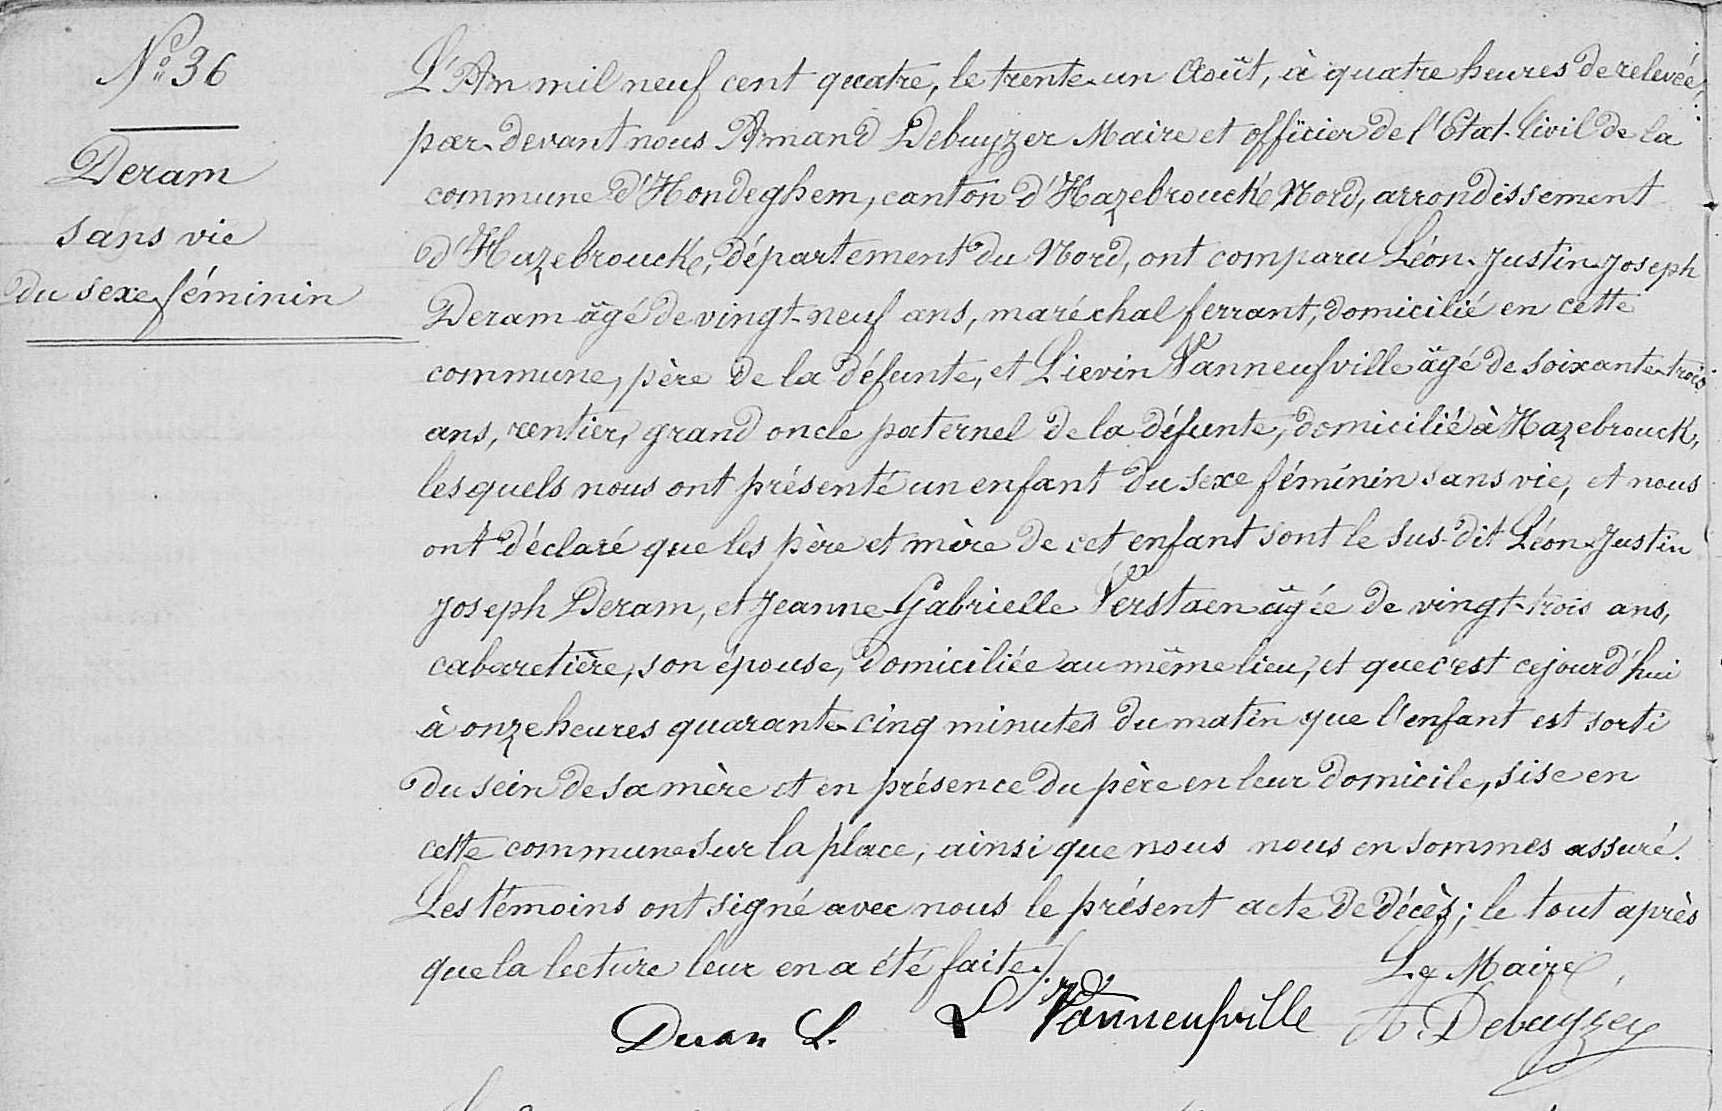 N° 36
Deram
sans vie
du sexe féminin
L'An mil neuf cent quatre, le trente-un Août, à quatre heures de relevée,
par-devant nous Amand Debuyzer Maire et officier de l'Etat-Civil de la
commune d'Hondeghem, canton d'Hazebrouck Nord, arrondissement
d'Hazebrouck, département du Nord, ont comparu Léon-Justin-Joseph
Deram âgé de vingt-neuf ans, maréchal ferrant, domicilié en cette
commune, père de la défunte, et Lievin Vanneufville âgé de soixante-trois
ans, rentier, grand oncle paternel de la défunte, domicilié à Hazebrouck,
lesquels nous ont présenté un enfant du sexe féminin sans vie, et nous
ont déclaré que les père et mère de cet enfant sont le sus-dit Léon-Justin
Joseph Deram, et Jeanne-Gabrielle Verstaen âgée de vingt-trois ans,
cabaretière, son épouse, domiciliée au même lieu, et que c'est cejourd'hui
à onze heures quarante-cinq minutes du matin que l'enfant est sorti
du sein de sa mère et en présence du père en leur domicile, sise en
cette commune sur la place, ainsi que nous nous en sommes assuré.
Les témoins ont signé avec nous le présent acte de décès; le tout après
que la lecture leur en a été faite./.
Le Maire,
Deram L. L Vanneufville A. Debuyzer